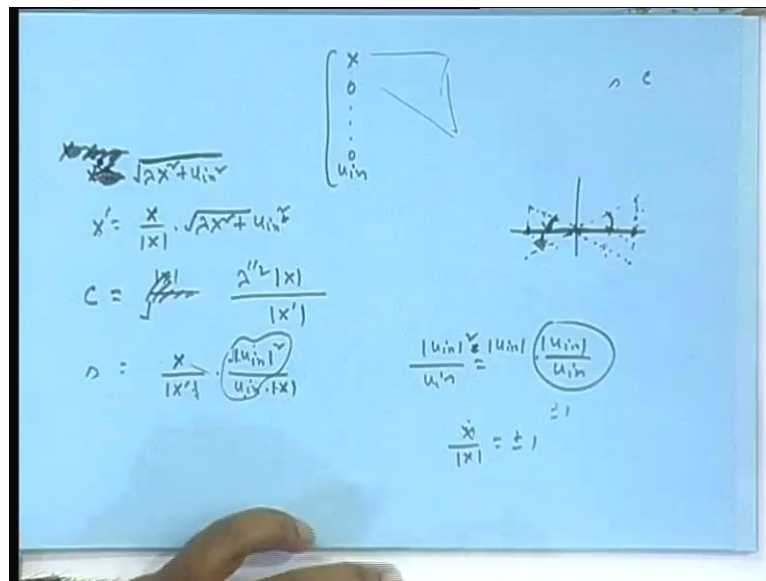 x
0
.
.
.
0
uin
s c
√λx²+uin²
x' = x/|x| · √λx²+ uin²
C = λ^1/2 |x| / |x'|
s = x/|x'| · |uin|²/uin·|x|
|uin|²/uin = |uin| · |uin|/uin
±1
x/|x| = ±1